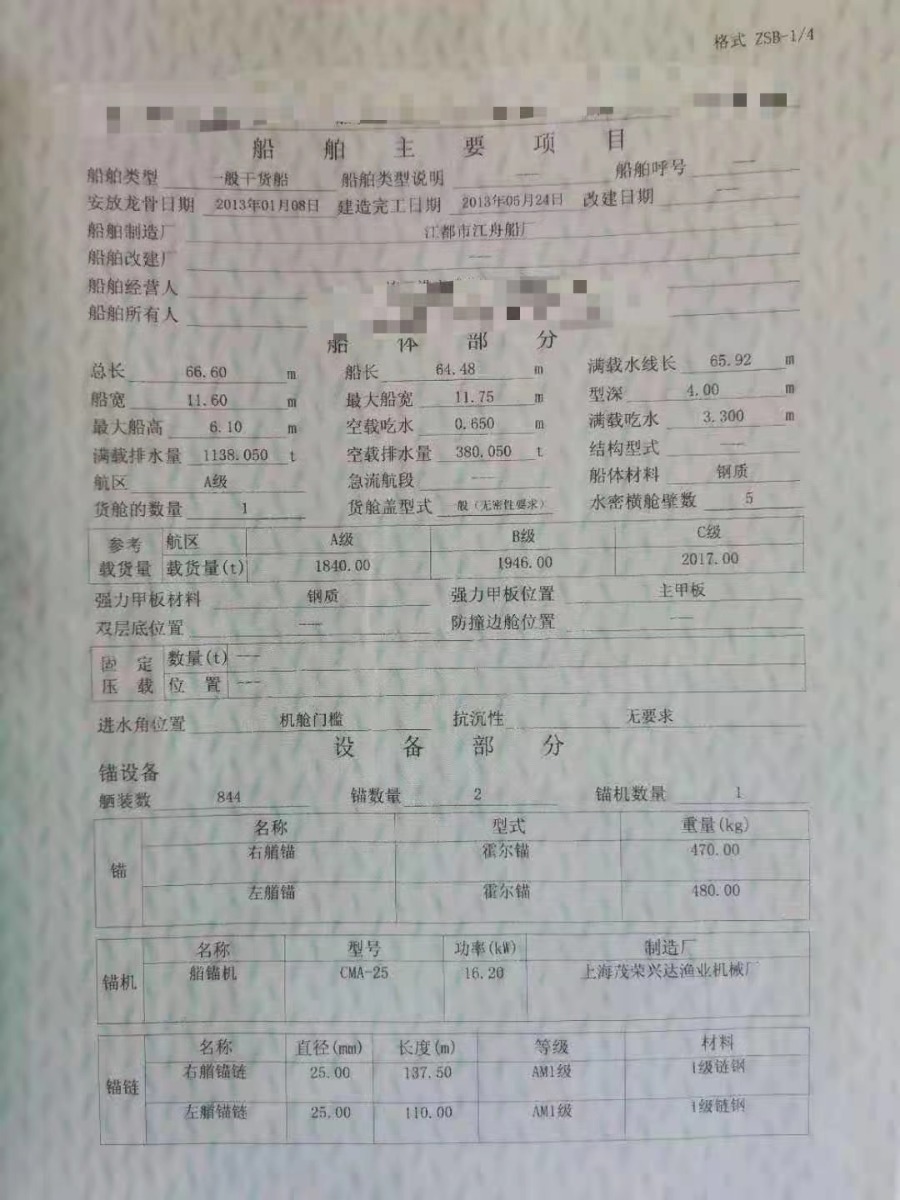 格式 ZSB-1/4
船舶主要项目
船舶类型 一般干货船 船舶类型说明 --- 船舶呼号 ---
安放龙骨日期 2013年01月08日 建造完工日期 2013年05月24日 改建日期 ---
船舶制造厂 江都市江舟船厂
船舶改建厂 ---
船舶经营人
船舶所有人
船体部分
总长 66.60 m 船长 64.48 m 满载水线长 65.92 m
船宽 11.60 m 最大船宽 11.75 m 型深 4.00 m
最大船高 6.10 m 空载吃水 0.650 m 满载吃水 3.300 m
满载排水量 1138.050 t 空载排水量 380.050 t 结构型式 ---
航区 A级 急流航段 --- 船体材料 钢质
货舱的数量 1 货舱盖型式 一般（无密性要求） 水密横舱壁数 5
参考 航区 A级 B级 C级
载货量 载货量(t) 1840.00 1946.00 2017.00
强力甲板材料 钢质 强力甲板位置 主甲板
双层底位置 --- 防撞边舱位置 ---
固定 数量(t) ---
压载 位置 ---
进水角位置 机舱门槛 抗沉性 无要求
设备部分
锚设备
舾装数 844 锚数量 2 锚机数量 1
名称 型式 重量(kg)
锚 右艏锚 霍尔锚 470.00
左艏锚 霍尔锚 480.00
名称 型号 功率(kW) 制造厂
锚机 艏锚机 CMA-25 16.20 上海茂荣兴达渔业机械厂
名称 直径(mm) 长度(m) 等级 材料
锚链 右艏锚链 25.00 137.50 AM1级 1级链钢
左艏锚链 25.00 110.00 AM1级 1级链钢